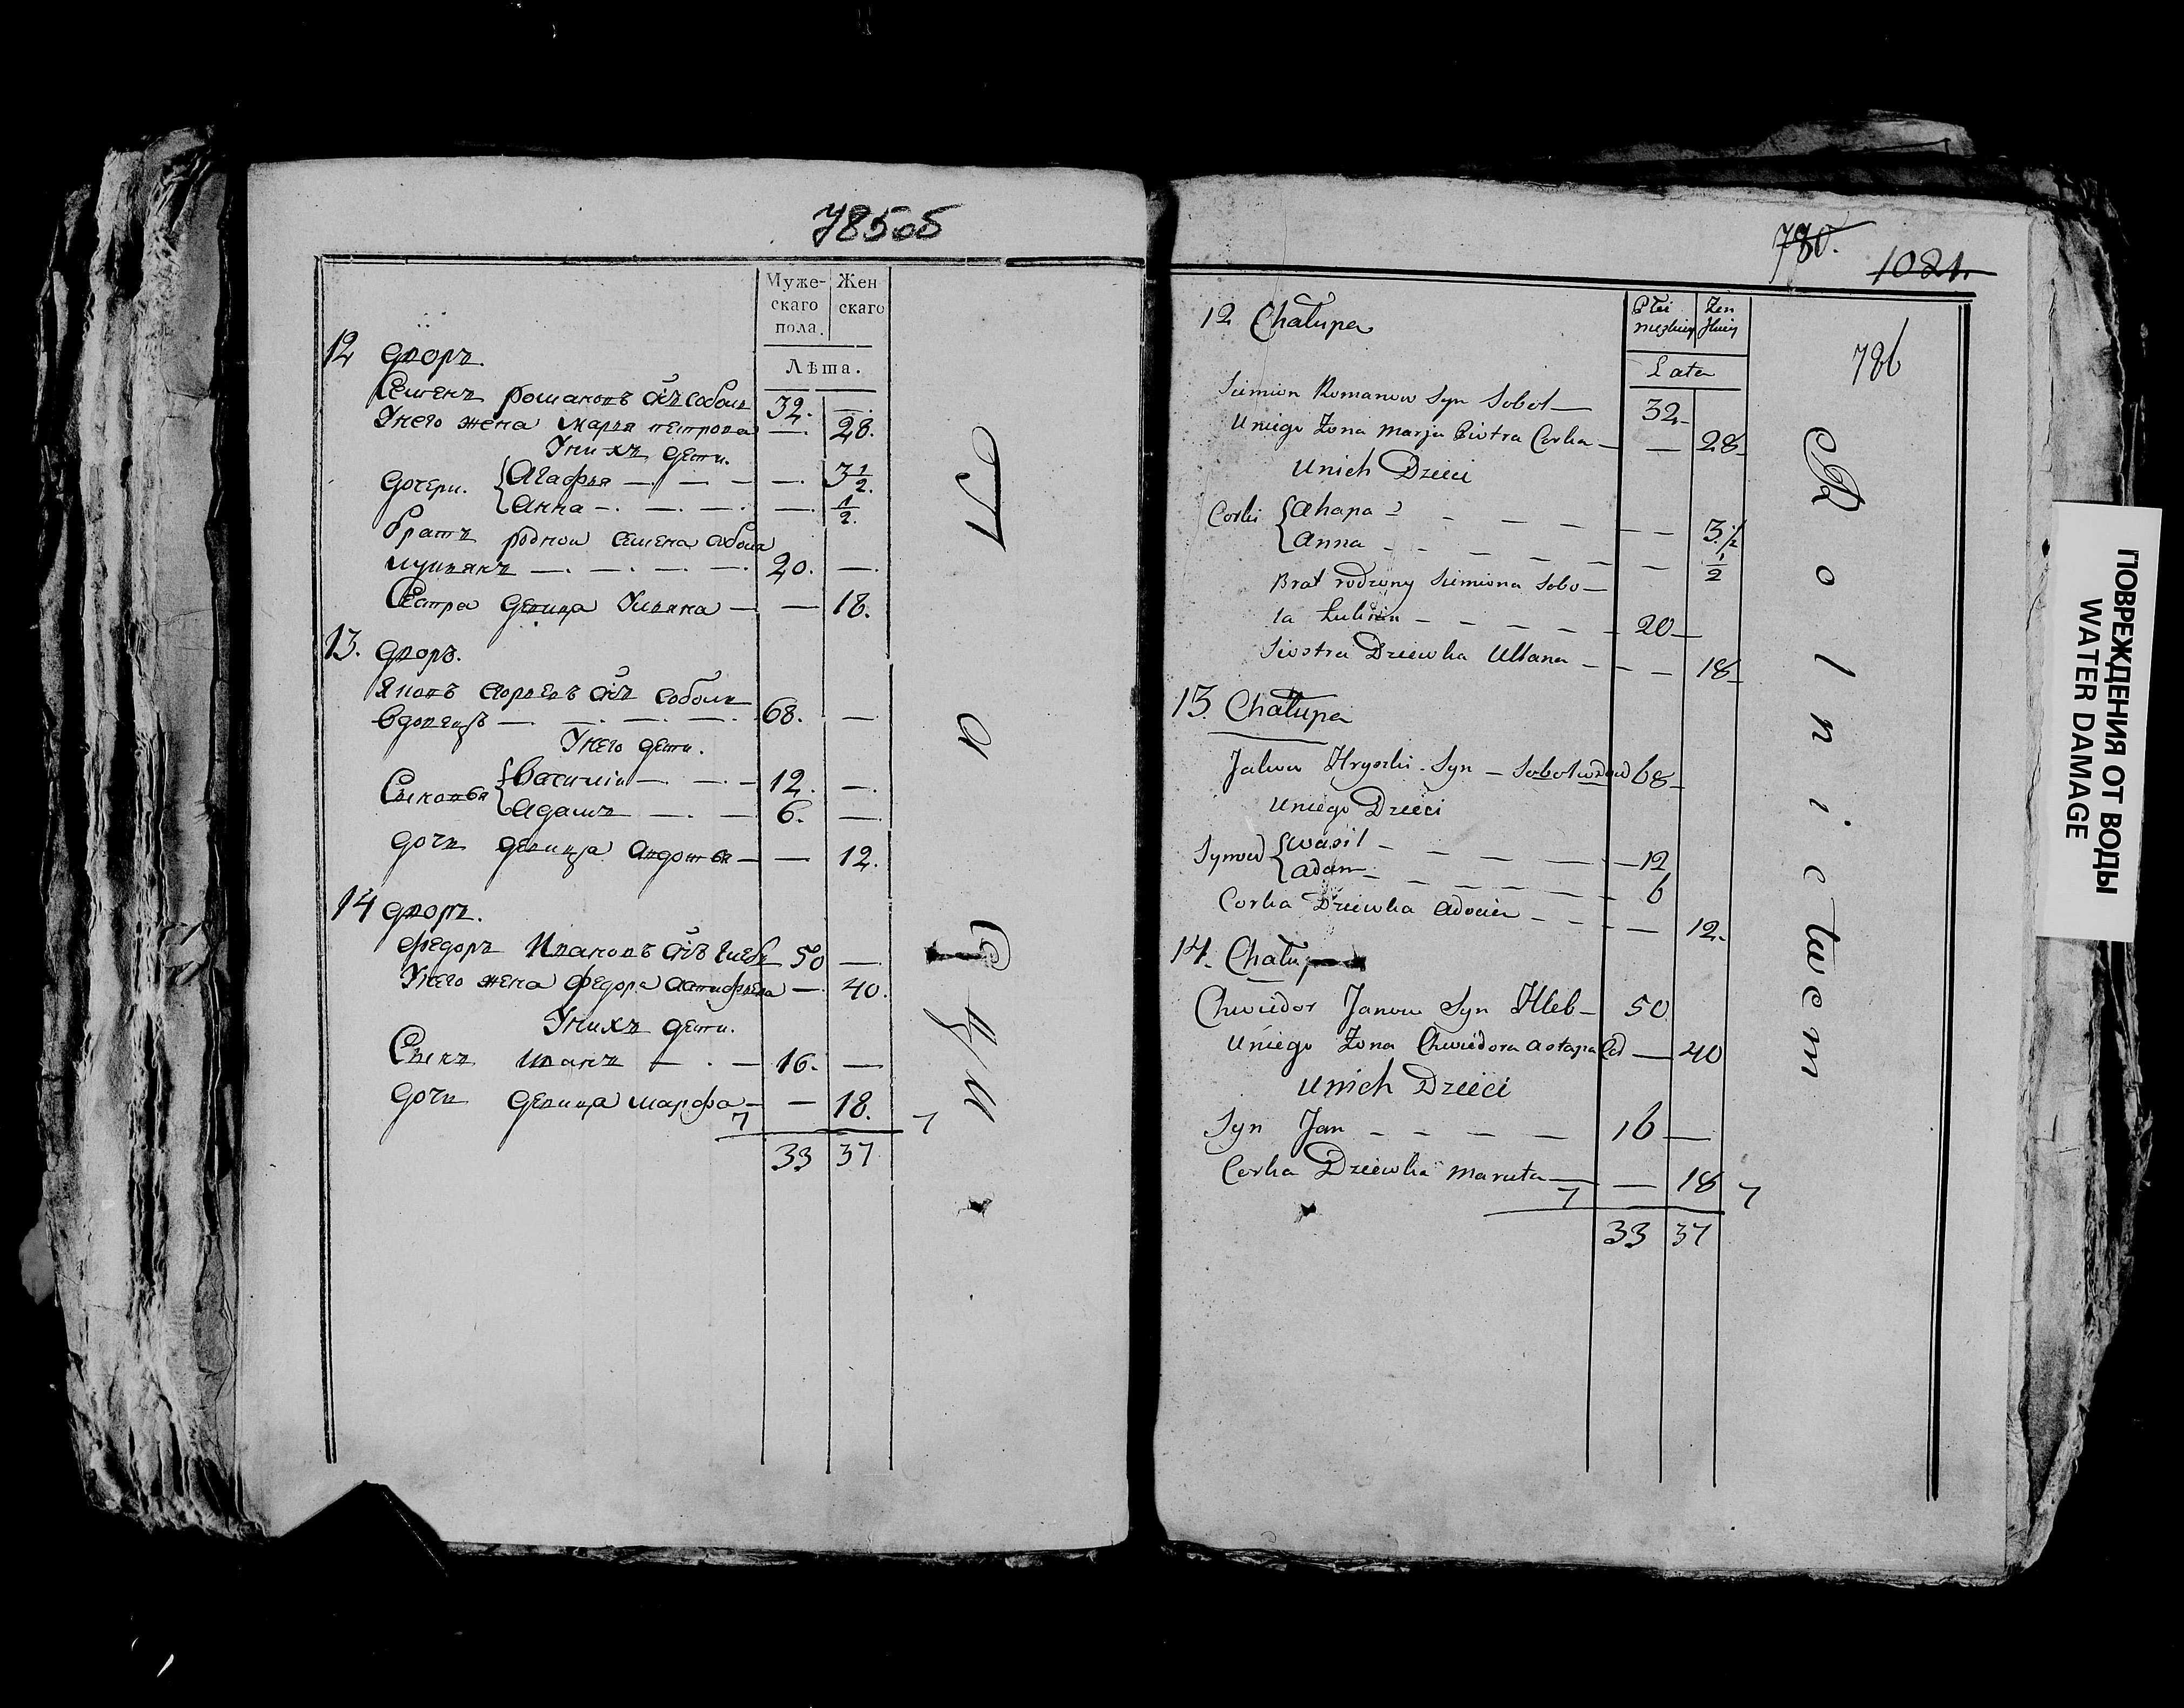 785об
Муже-
скаго
пола.
Жен
скаго
Лѣта.
12 дворъ.
Семенъ Романовъ снъ Соболь 32. —
У него жена Марья Петрова — 28.
У нихъ дети.
дочери. Агафья — 3 1/2.
Анна — 1/2.
братъ родной Семена Соболя
Лукьянъ — 20. —
Сестра девица Ульяна — 18.
13. дворъ.
Яковъ снъ Соболь
вдовецъ — 68. —
У него дети.
Сыновья Василий — 12. —
Адамъ — 6. —
дочь девица Авдотья — 12.
14 дворъ.
Федоръ Ивановъ снъ Глебъ 50 —
У него жена Федора — 40.
У нихъ дети.
Сынъ Иванъ — 16. —
дочь девица Марфа — 18.
7 7
33 37
780.
1021.
786
12 Chałupa
Płci
męzkiey
Żeń
skiey
Lata
Siemion Romanow Syn Sobol — 32 —
U niego Żona Marja Piotra Corka — — 28 —
U nich Dzieci
Corki Ahapa — 3 1/2
Anna — 1/2
Brat rodzony Siemiona Sobo —
la Łukian — 20 —
Siostra Dziewka Ullana — 18 —
13 Chałupa
Jakow Hryszki Syn — Sobol wdow 68 —
U niego Dzieci
Synow Wasil — 12
Adam — 6
Corka Dziewka Adocia — 12.
14. Chałupa
Chwiedor Janow Syn Hleb — 50
U niego Żona Chwiedora Astapa Cd — 40
U nich Dzieci
Syn Jan — 16 —
Corka Dziewka Maruta — 18
7 7
33 37
Rolnictwem
ПОВРЕЖДЕНИЯ ОТ ВОДЫ
WATER DAMAGE